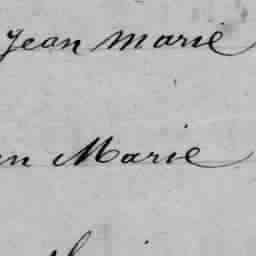 Jean Marie
n Marie